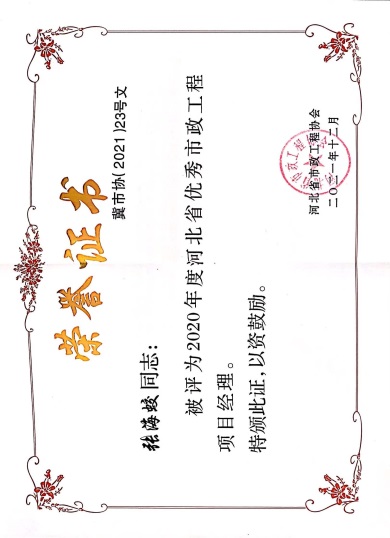 荣誉证书
冀市协(2021)23号文
张海蛟同志：
被评为2020年度河北省优秀市政工程
项目经理。
特颁此证，以资鼓励。
河北省市政工程协会
二〇二一年十二月